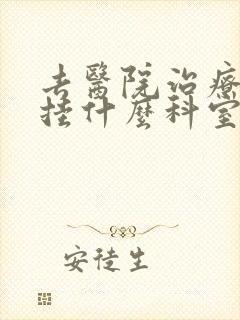 去醫院治療
挂什麼科室
安徒生